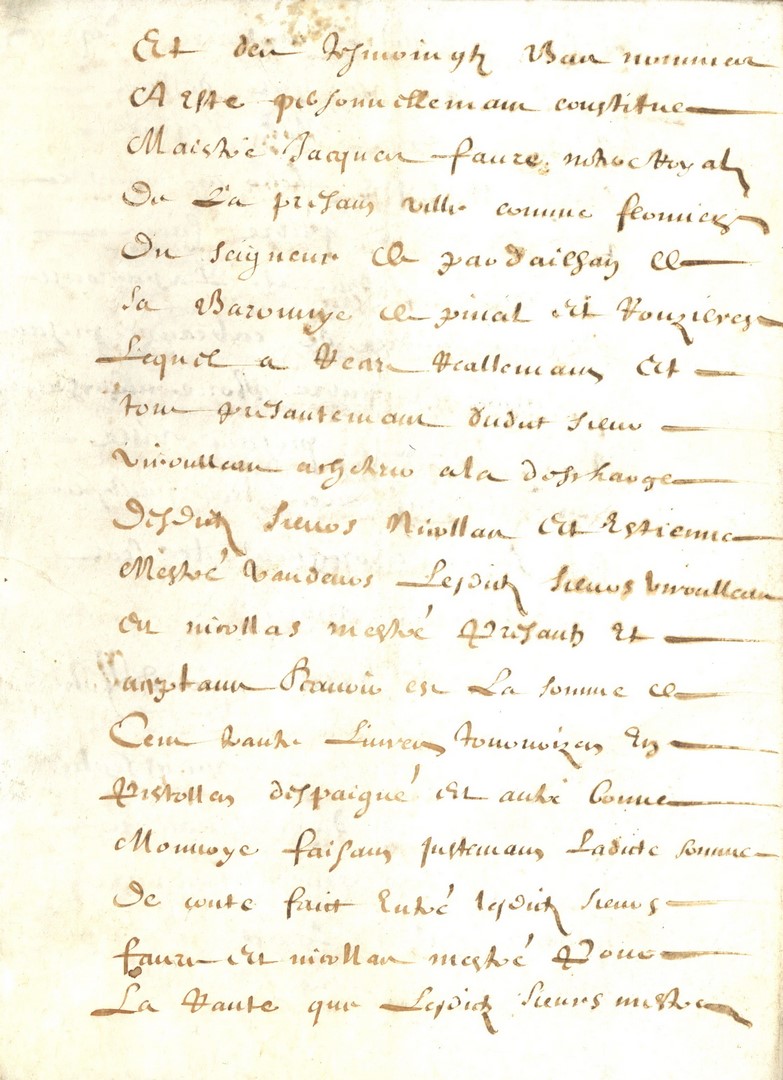 Et des tesmoingtz Bas nommes
A este personnellemant constitue
Maistre Jacques faure nottere Royal
De La presant ville comme fermier
Du seigneur de pardailhan de
sa Baronnye de pinat et Rouzieres
Lequel a Reçeu Reallemant Et
tout presantemant dudict sieur
Viroulleau achetur a la descharge
Desdictz sieurs Nicollas Et Estienne
Mestré Vandeurs Lesdictz sieurs Viroulleau
Et nicollas mestré Presantz Et
aceptant scavoir est La somme de
Cent trante Liuvres tournoizes En
Pistolles despaigne et autre bonne
Monnoye faisant justemant Ladicte somme
De conte faict Entré lesdictz sieurs
faure Et nicollas mestré Pour
La Vante que Lesdictz sieurs mestre